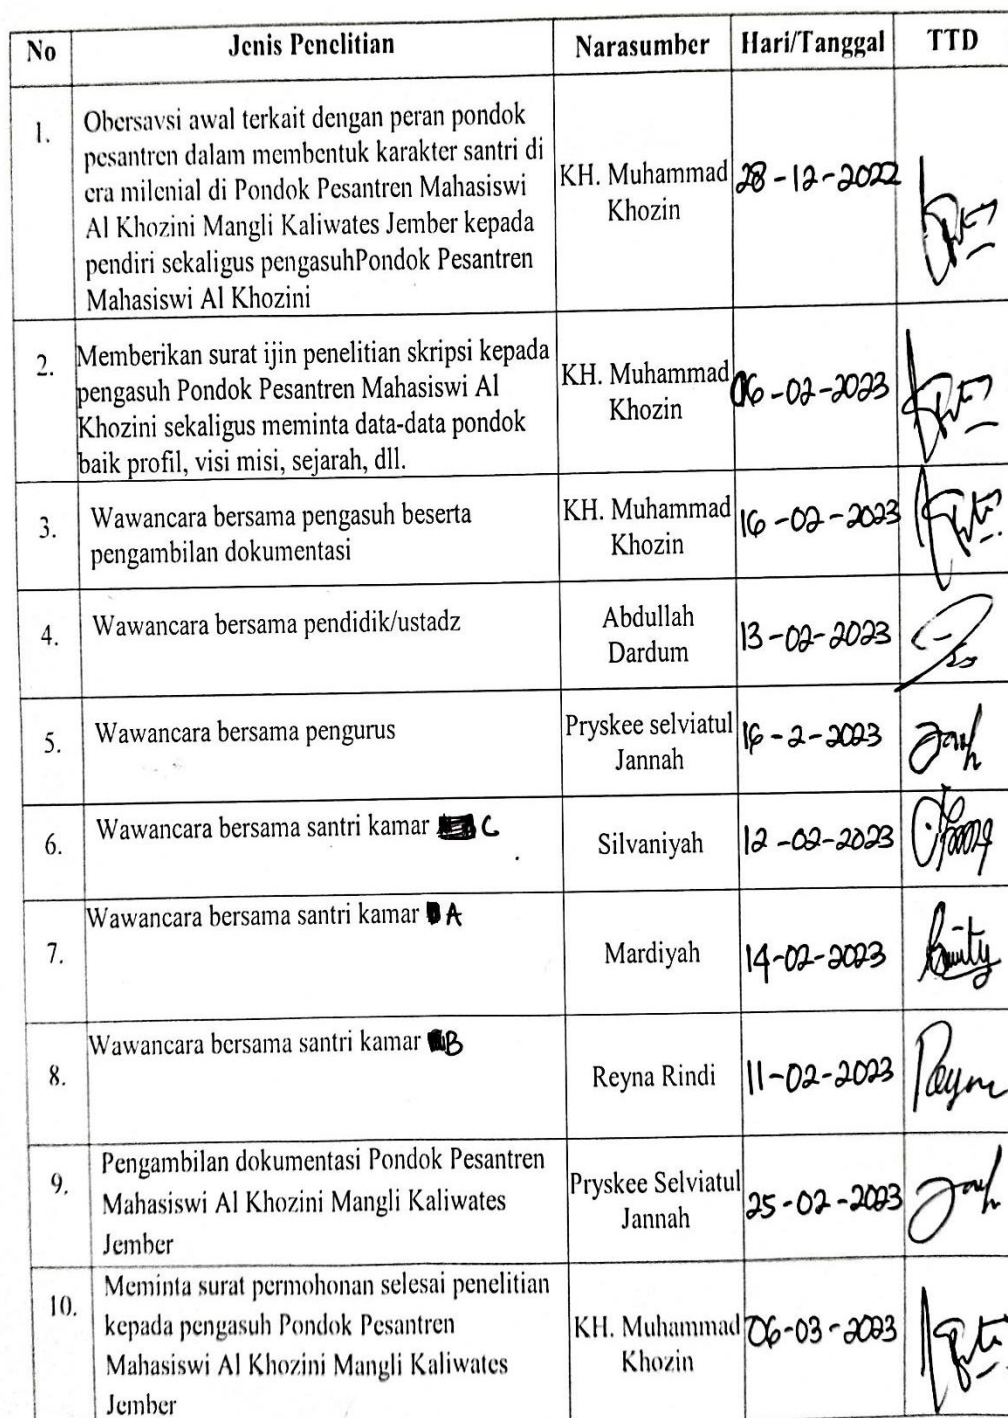 No Jenis Penelitian Narasumber Hari/Tanggal TTD
1. Obersavsi awal terkait dengan peran pondok
pesantren dalam membentuk karakter santri di
era milenial di Pondok Pesantren Mahasiswi
Al Khozini Mangli Kaliwates Jember kepada
pendiri sekaligus pengasuhPondok Pesantren
Mahasiswi Al Khozini
KH. Muhammad
Khozin
28-12-2022
2. Memberikan surat ijin penelitian skripsi kepada
pengasuh Pondok Pesantren Mahasiswi Al
Khozini sekaligus meminta data-data pondok
baik profil, visi misi, sejarah, dll.
KH. Muhammad
Khozin
06-02-2023
3. Wawancara bersama pengasuh beserta
pengambilan dokumentasi
KH. Muhammad
Khozin
16-02-2023
4. Wawancara bersama pendidik/ustadz
Abdullah
Dardum
13-02-2023
5. Wawancara bersama pengurus
Pryskee selviatul
Jannah
16-2-2023
6. Wawancara bersama santri kamar C
Silvaniyah
12-02-2023
7. Wawancara bersama santri kamar A
Mardiyah
14-02-2023
8. Wawancara bersama santri kamar B
Reyna Rindi
11-02-2023
9. Pengambilan dokumentasi Pondok Pesantren
Mahasiswi Al Khozini Mangli Kaliwates
Jember
Pryskee Selviatul
Jannah
25-02-2023
10. Meminta surat permohonan selesai penelitian
kepada pengasuh Pondok Pesantren
Mahasiswi Al Khozini Mangli Kaliwates
Jember
KH. Muhammad
Khozin
06-03-2023